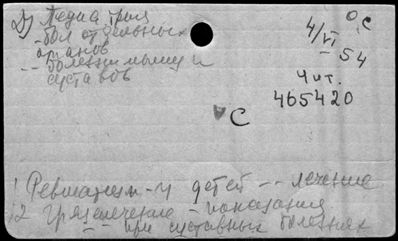 2) Педиатрия
- бол. отдельных
органов
- - болезни мышц и
суставов
4/VI
54
о С
Чит.
465420
С
1 Ревматизм - у детей - - лечение
2 Грязелечение - показания
- - при суставных болезнях